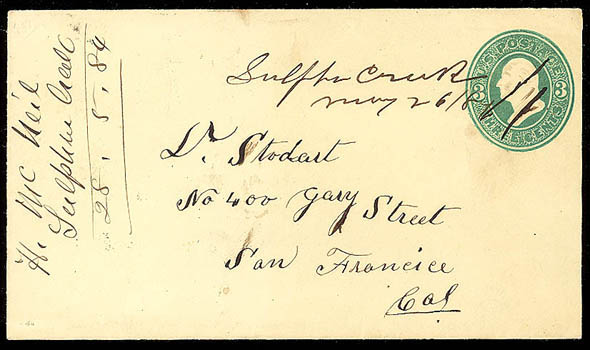 H. McNeil
Sulphur Creek
28. 5. 84
Sulphr Creek
May 26/8
U.S. POSTAGE
3 3
THREE CENTS
Dr Stodart
No 400 Gary Street
San Francice
Cal